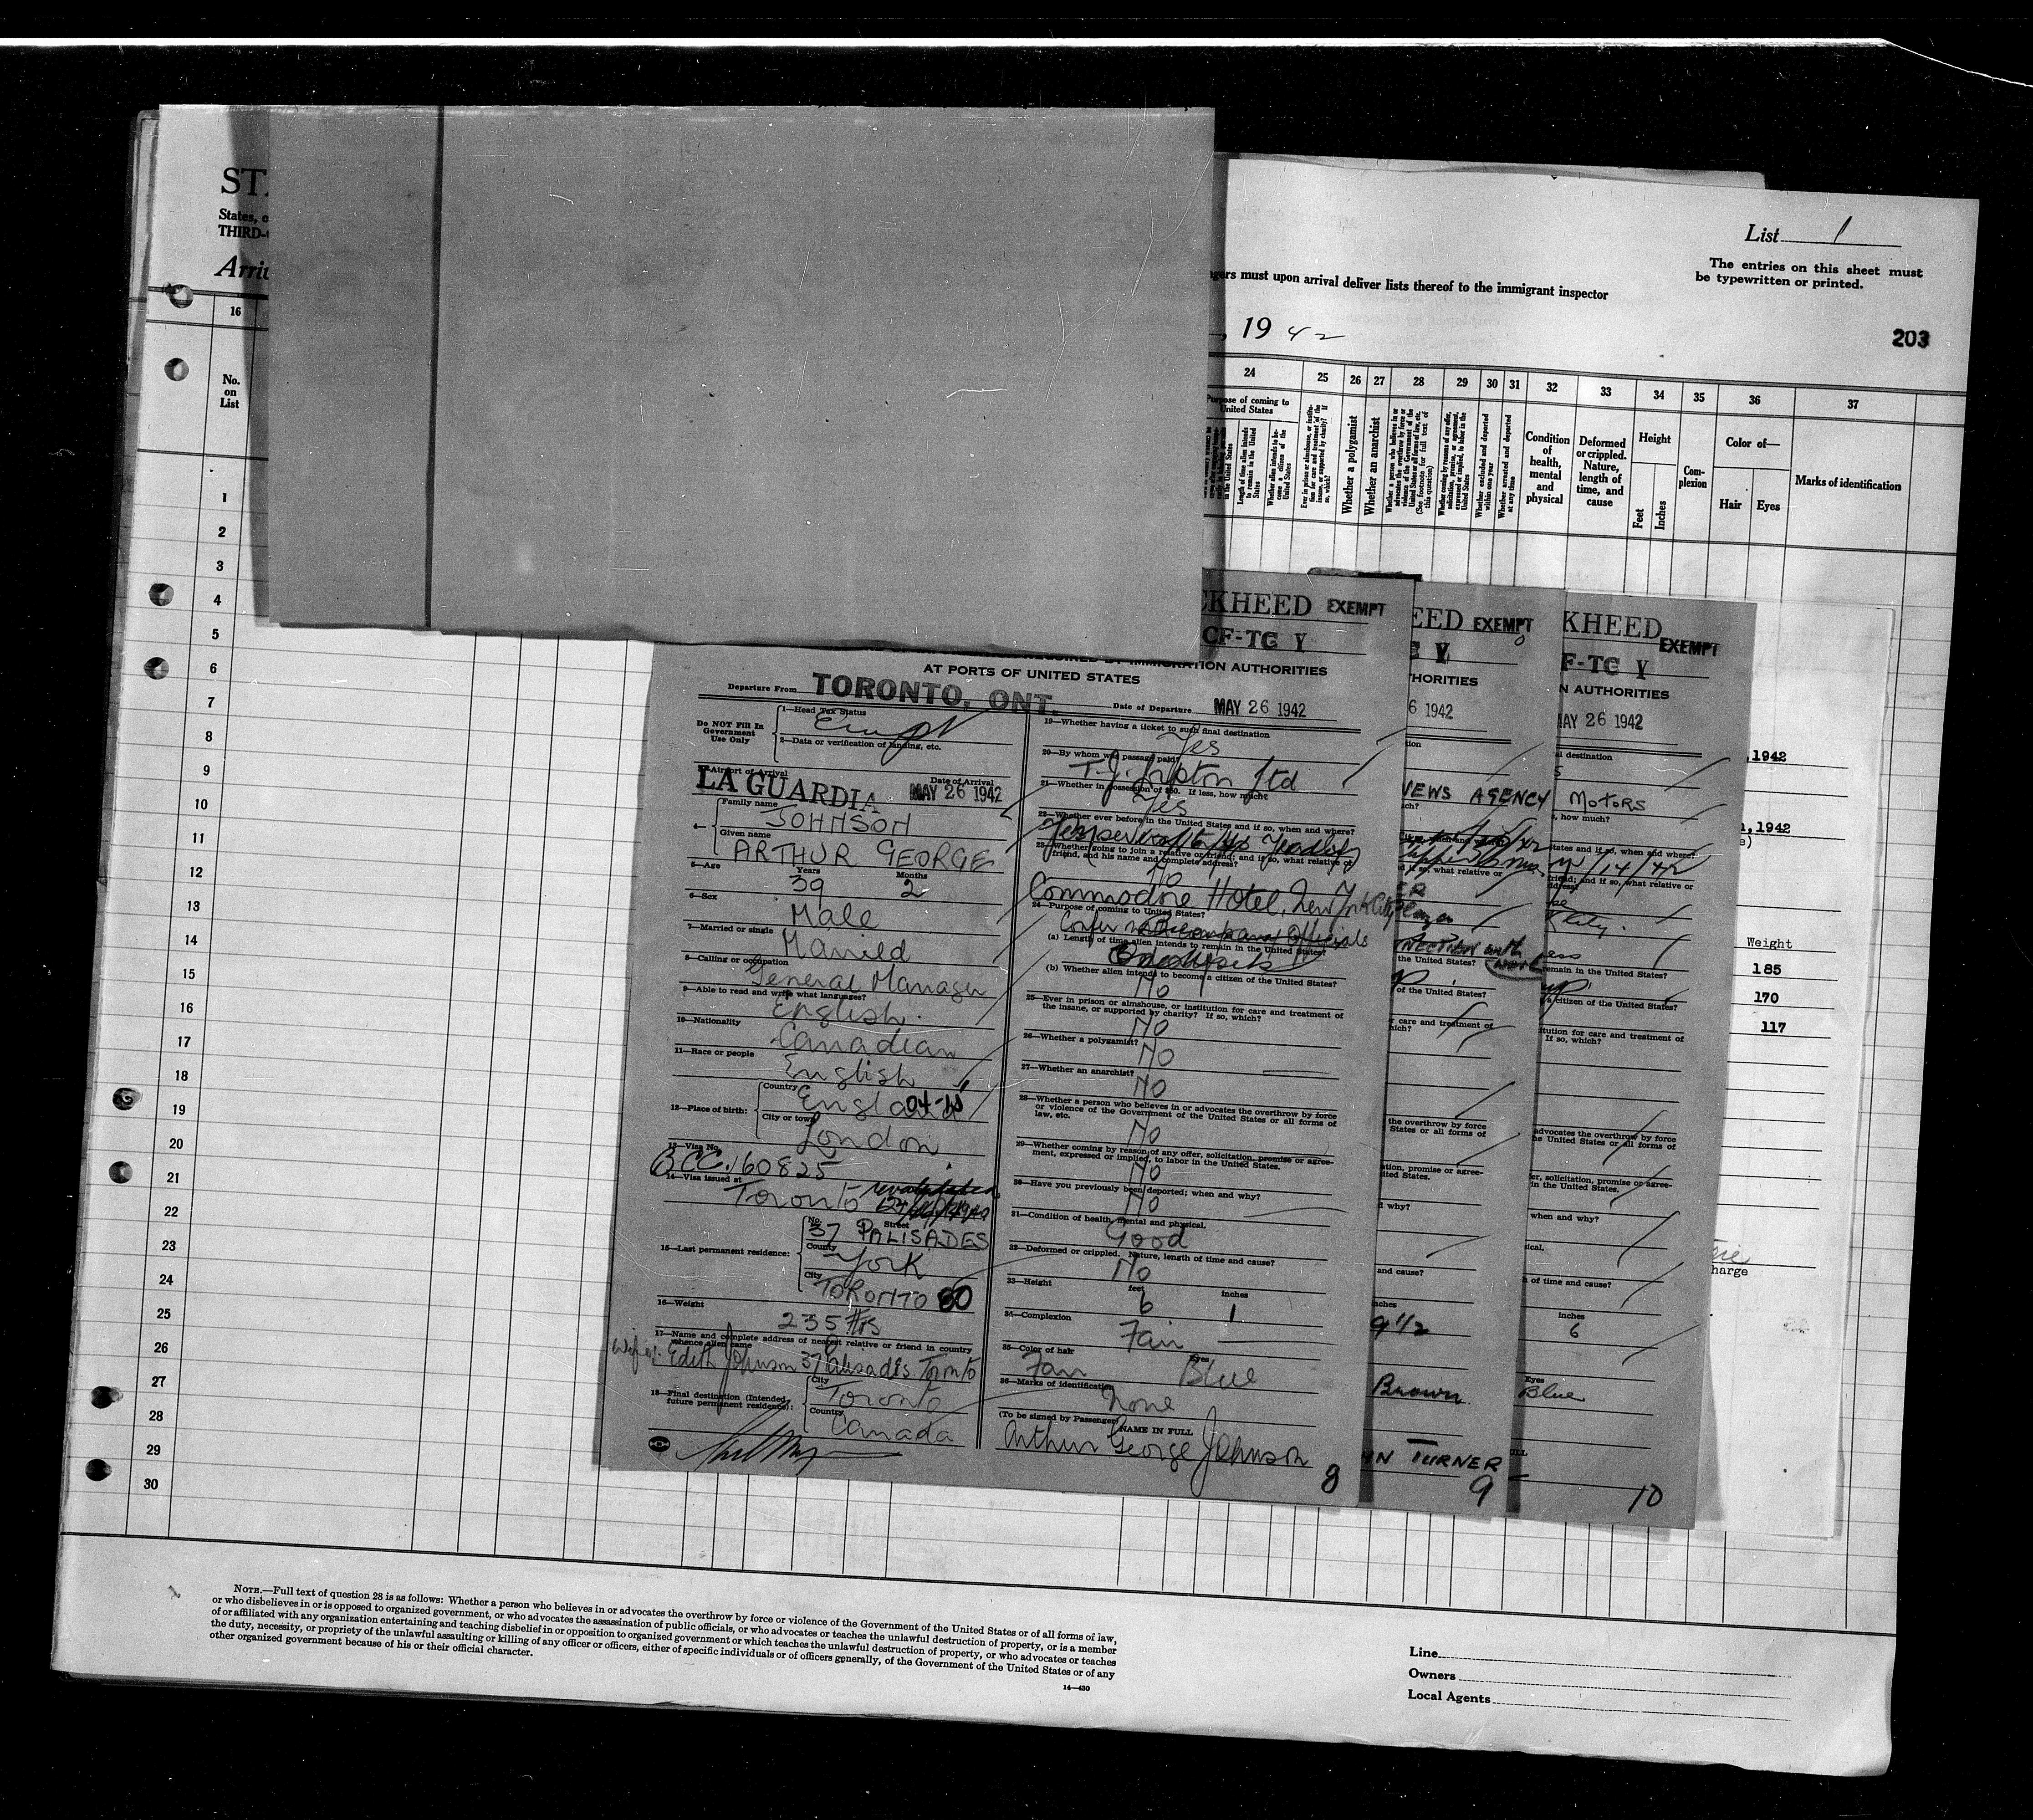 ST
States, o
THIRD-
Arri
List 1
The entries on this sheet must
be typewritten or printed.
gers must upon arrival deliver lists thereof to the immigrant inspector
, 19 42
203
16
24
25
26
27
28
29
30
31
32
33
34
35
36
37
No.
on
List
Purpose of coming to
United States
Length of time alien intends
to remain in the United
States
Whether alien intends to be-
come a citizen of the
United States
Whether a polygamist
Whether an anarchist
Condition
of
health,
mental
and
physical
Deformed
or crippled.
Nature,
length of
time, and
cause
Height
Feet
Inches
Com-
plexion
Color of—
Hair
Eyes
Marks of identification
1
2
3
4
5
6
7
8
9
10
11
12
13
14
15
16
17
18
19
20
21
22
23
24
25
26
27
28
29
30
CKHEED EXEMPT
CF-TC Y
AT PORTS OF UNITED STATES
Departure From TORONTO, ONT.
Date of Departure MAY 26 1942
Do NOT Fill In
Government
Use Only
1—Head Tax Status
2—Data or verification of landing, etc.
Airport of Arrival
LA GUARDIA
Date of Arrival
MAY 26 1942
4—
Family name
JOHNSON
Given name
ARTHUR GEORGE
5—Age
Years
39
Months
2
6—Sex
Male
7—Married or single
Married
8—Calling or occupation
General Manager
9—Able to read and write what languages?
English
10—Nationality
Canadian
11—Race or people
English
12—Place of birth:
Country
England
City or town
London
13—Visa No.
160825
14—Visa issued at
Toronto
15—Last permanent residence:
No.
Street
37 PALISADES
County
York
City
TORONTO
16—Weight
235
17—Name and complete address of nearest relative or friend in country
whence alien came
Edith Johnson 37 Palisades Toronto
18—Final destination (Intended
future permanent residence):
City
Toronto
Country
Canada
19—Whether having a ticket to such final destination
Yes
20—By whom was passage paid?
T.J. Lipton Ltd
21—Whether in possession of $50. If less, how much?
Yes
22—Whether ever before in the United States and if so, when and where?
23—Whether going to join a relative or friend; and if so, what relative or
friend, and his name and complete address?
No
Commodore Hotel, New York City
24—Purpose of coming to United States?
(a) Length of time alien intends to remain in the United States?
(b) Whether alien intends to become a citizen of the United States?
No
25—Ever in prison or almshouse, or institution for care and treatment of
the insane, or supported by charity? If so, which?
No
26—Whether a polygamist?
No
27—Whether an anarchist?
No
28—Whether a person who believes in or advocates the overthrow by force
or violence of the Government of the United States or all forms of
law, etc.
No
29—Whether coming by reason of any offer, solicitation, promise or agree-
ment, expressed or implied, to labor in the United States.
No
30—Have you previously been deported; when and why?
No
31—Condition of health, mental and physical.
Good
32—Deformed or crippled. Nature, length of time and cause?
No
33—Height
feet
6
inches
1
34—Complexion
Fair
35—Color of hair
Fair
Eyes
Blue
36—Marks of identification
None
(To be signed by Passenger)
NAME IN FULL
Arthur George Johnson
8
EED EXEMPT
HORITIES
6 1942
NEWS AGENCY
the United States?
of the United States?
care and treatment of
the overthrow by force
States or all forms of
ation, promise or agree-
ited States.
why?
and cause?
inches
9 1/2
Brown
TURNER
9
KHEED EXEMPT
F-TC Y
N AUTHORITIES
MAY 26 1942
al destination
MOTORS
, how much?
remain in the United States?
a citizen of the United States?
tution for care and treatment of
If so, which?
advocates the overthrow by force
he United States or all forms of
er, solicitation, promise or agree-
in the United States.
when and why?
ical.
of time and cause?
inches
6
Eyes
Blue
10
, 1942
, 1942
Weight
185
170
117
harge
NOTE.—Full text of question 28 is as follows: Whether a person who believes in or advocates the overthrow by force or violence of the Government of the United States or of all forms of law,
or who disbelieves in or is opposed to organized government, or who advocates the assassination of public officials, or who advocates or teaches the unlawful destruction of property, or is a member
of or affiliated with any organization entertaining and teaching disbelief in or opposition to organized government or which teaches the unlawful destruction of property, or who advocates or teaches
the duty, necessity, or propriety of the unlawful assaulting or killing of any officer or officers, either of specific individuals or of officers generally, of the Government of the United States or of any
other organized government because of his or their official character.
14—430
Line
Owners
Local Agents